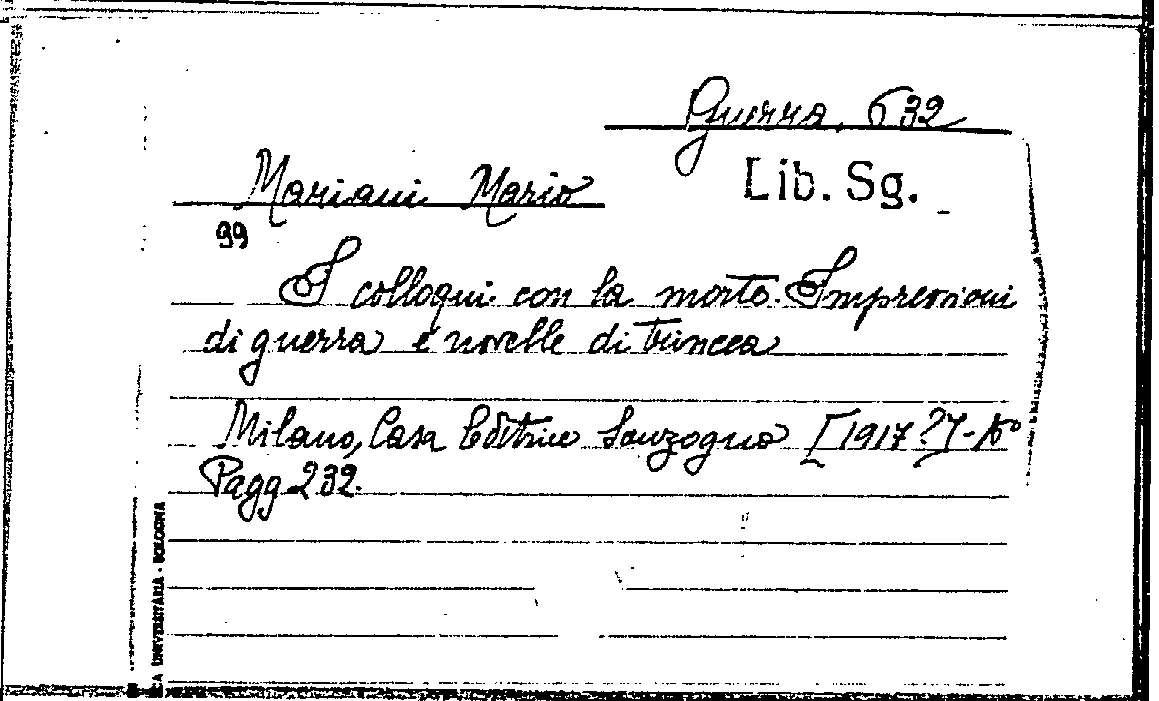 Guerra. 632
Lib. Sg.
Mariani Mario
99
I colloqui con la morte. Impressioni
di guerra e novelle di trincea
Milano, Casa Editrice Sonzogno [1917?]-16°
Pagg 232.
CA UNIVERSITARIA - BOLOGNA